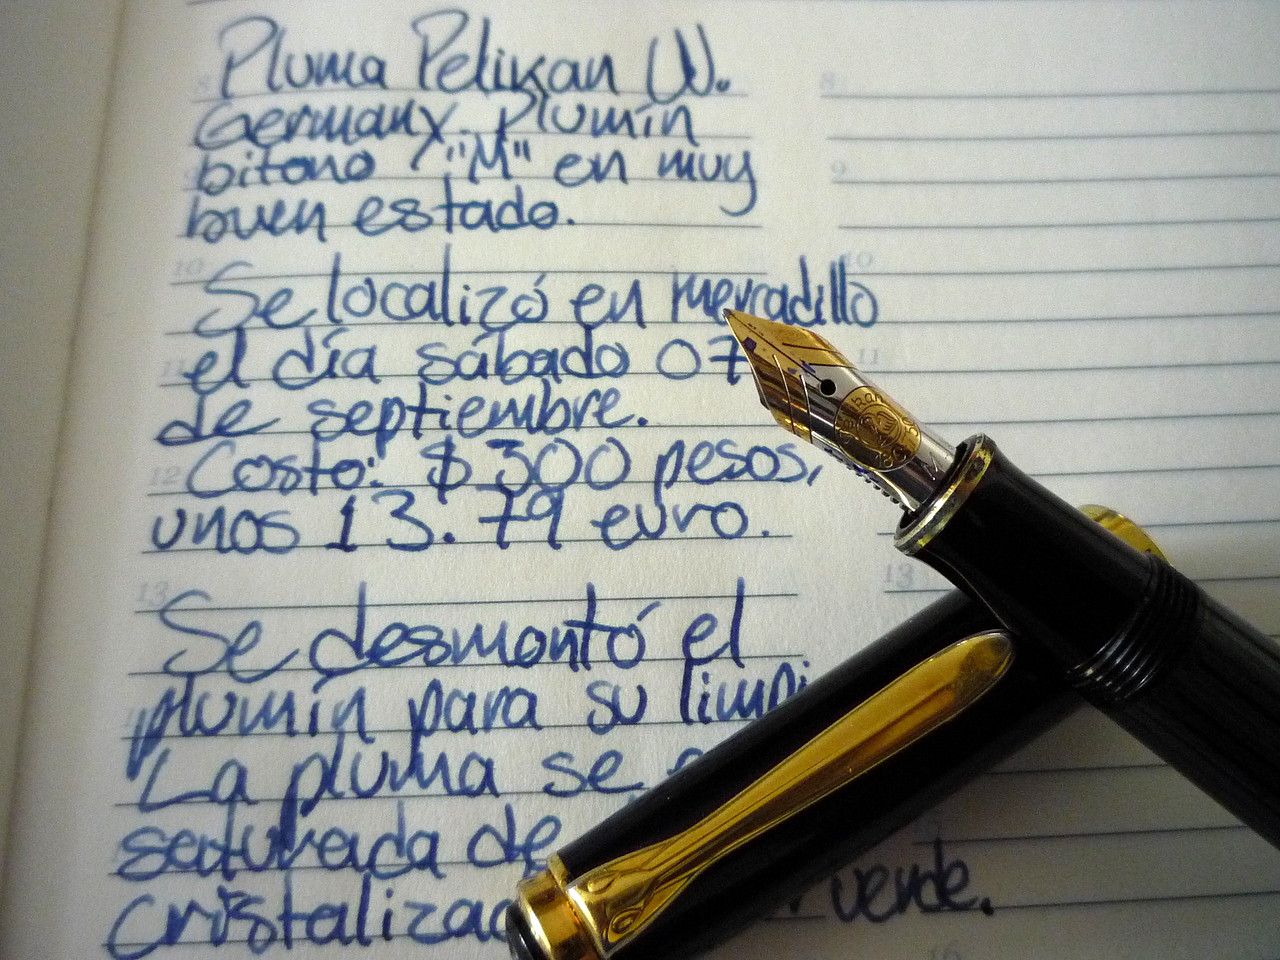 Pluma Pelikan W.
Germany. Plumín
bitono "M" en muy
buen estado.
Se localizó en mercadillo
el día sábado 07
de septiembre.
Costo: $300 pesos,
unos 13.79 euro.
Se desmontó el
plumín para su limpi
La pluma se
saturada de
cristalizad
verde.
8
8
9
9
10
10
11
11
12
13
13